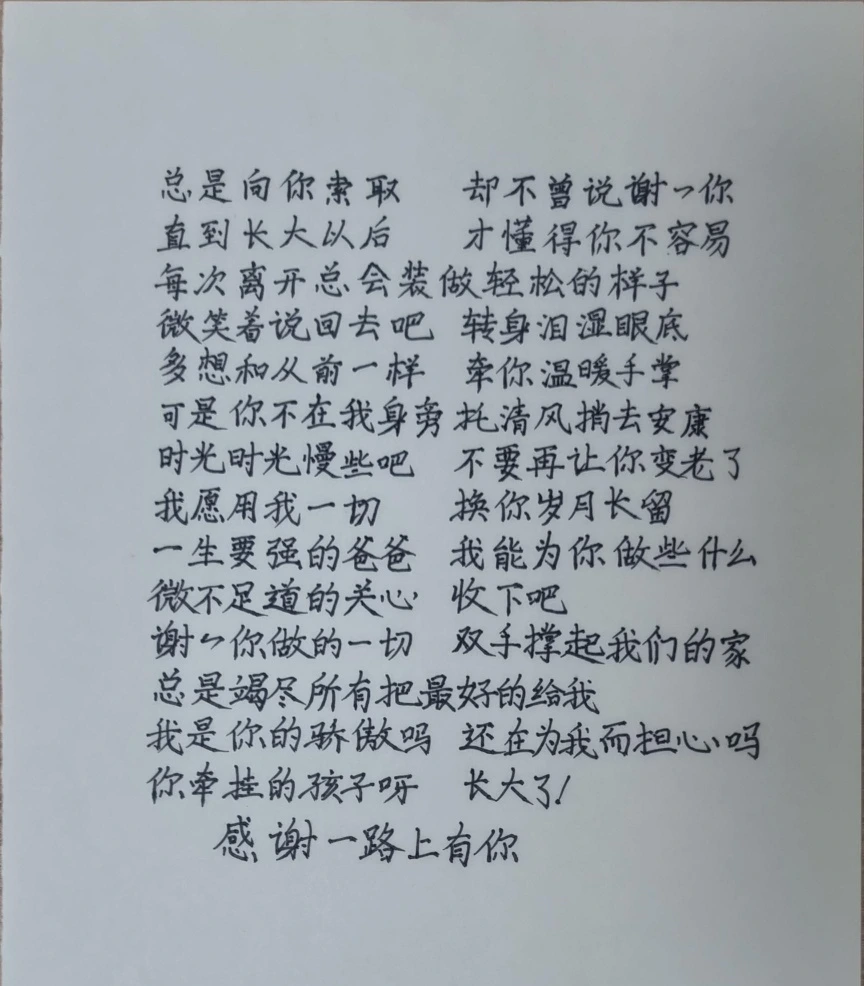 总是向你索取 却不曾说谢々你
直到长大以后 才懂得你不容易
每次离开总会装做轻松的样子
微笑着说回去吧 转身泪湿眼底
多想和从前一样 牵你温暖手掌
可是你不在我身旁 托清风捎去安康
时光时光慢些吧 不要再让你变老了
我愿用我一切 换你岁月长留
一生要强的爸爸 我能为你做些什么
微不足道的关心 收下吧
谢々你做的一切 双手撑起我们的家
总是竭尽所有把最好的给我
我是你的骄傲吗 还在为我而担心吗
你牵挂的孩子呀 长大了!
感谢一路上有你